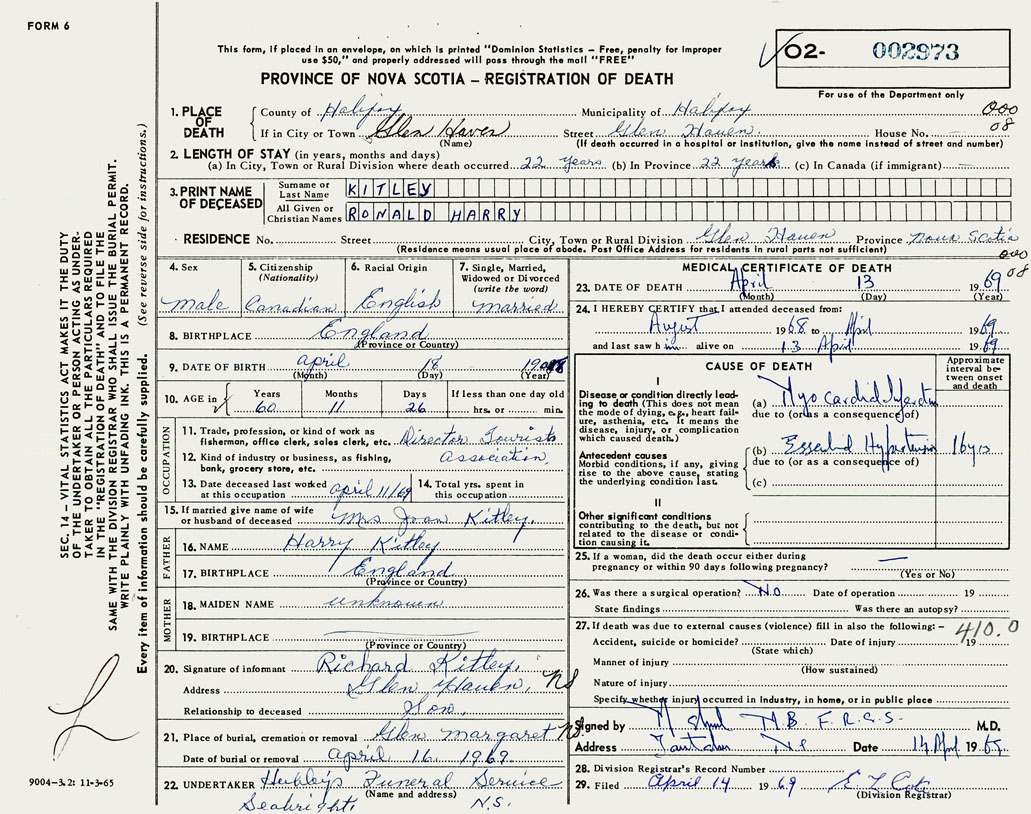 FORM 6
This form, if placed in an envelope, on which is printed "Dominion Statistics – Free, penalty for improper
use $50," and properly addressed will pass through the mail "FREE"
PROVINCE OF NOVA SCOTIA – REGISTRATION OF DEATH
O2- 002973
For use of the Department only
1. PLACE OF DEATH
County of Halifax Municipality of Halifax 000
If in City or Town Glen Haven Street Glen Haven House No. — 08
(Name) (If death occurred in a hospital or institution, give the name instead of street and number)
2. LENGTH OF STAY (in years, months and days)
(a) In City, Town or Rural Division where death occurred 22 years (b) In Province 22 years (c) In Canada (if immigrant) —
3. PRINT NAME OF DECEASED
Surname or Last Name KITLEY
All Given or Christian Names RONALD HARRY
RESIDENCE No. Street City, Town or Rural Division Glen Haven Province Nova Scotia
(Residence means usual place of abode. Post Office Address for residents in rural parts not sufficient)
000
08
4. Sex
male
5. Citizenship
(Nationality)
Canadian
6. Racial Origin
English
7. Single, Married,
Widowed or Divorced
(write the word)
married
8. BIRTHPLACE England
(Province or Country)
9. DATE OF BIRTH april 18 1908
(Month) (Day) (Year)
10. AGE in
Years Months Days If less than one day old
60 11 26 hrs. or min.
OCCUPATION
11. Trade, profession, or kind of work as
fisherman, office clerk, sales clerk, etc. Director Tourists
12. Kind of industry or business, as fishing, Association
bank, grocery store, etc.
13. Date deceased last worked
at this occupation april 11/69
14. Total yrs. spent in
this occupation
15. If married give name of wife
or husband of deceased Mrs Joan Kitley.
FATHER
16. NAME Harry Kitley
17. BIRTHPLACE England
(Province or Country)
MOTHER
18. MAIDEN NAME unknown
19. BIRTHPLACE
(Province or Country)
20. Signature of informant Richard Kitley.
Address Glen Haven, NS
Relationship to deceased Son.
21. Place of burial, cremation or removal Glen Margaret NS.
Date of burial or removal April 16, 1969.
22. UNDERTAKER Hubley's Funeral Service
(Name and address)
Seabright, N.S.
MEDICAL CERTIFICATE OF DEATH
23. DATE OF DEATH April 13 1969
(Month) (Day) (Year)
24. I HEREBY CERTIFY that I attended deceased from:
August 1968 to April 1969
and last saw h im alive on 13 April 1969
CAUSE OF DEATH
Approximate
interval be-
tween onset
and death
I
Disease or condition directly lead-
ing to death (This does not mean
the mode of dying, e.g., heart fail-
ure, asthenia, etc. It means the
disease, injury, or complication
which caused death.)
(a) Myocardial Infarction
due to (or as a consequence of)
Antecedent causes
Morbid conditions, if any, giving
rise to the above cause, stating
the underlying condition last.
(b) Essential Hypertension 16 yrs
due to (or as a consequence of)
(c)
II
Other significant conditions
contributing to the death, but not
related to the disease or condi-
tion causing it.
25. If a woman, did the death occur either during
pregnancy or within 90 days following pregnancy? —
(Yes or No)
26. Was there a surgical operation? NO Date of operation 19
State findings Was there an autopsy?
27. If death was due to external causes (violence) fill in also the following: – 410.0
Accident, suicide or homicide? Date of injury 19
(State which)
Manner of injury
(How sustained)
Nature of injury
Specify whether injury occurred in Industry, in home, or in public place
Signed by M.B. F.R.C.S. M.D.
Address Tantallon NS Date 14 April 1969
28. Division Registrar's Record Number
29. Filed April 14 1969
(Division Registrar)
SEC. 14 – VITAL STATISTICS ACT MAKES IT THE DUTY
OF THE UNDERTAKER OR PERSON ACTING AS UNDER-
TAKER TO OBTAIN ALL THE PARTICULARS REQUIRED
IN THE "REGISTRATION OF DEATH" AND TO FILE THE
SAME WITH THE DIVISION REGISTRAR WHO SHALL ISSUE THE BURIAL PERMIT.
WRITE PLAINLY WITH UNFADING INK. THIS IS A PERMANENT RECORD.
Every item of information should be carefully supplied. (See reverse side for instructions.)
9004-3.2: 11-3-65